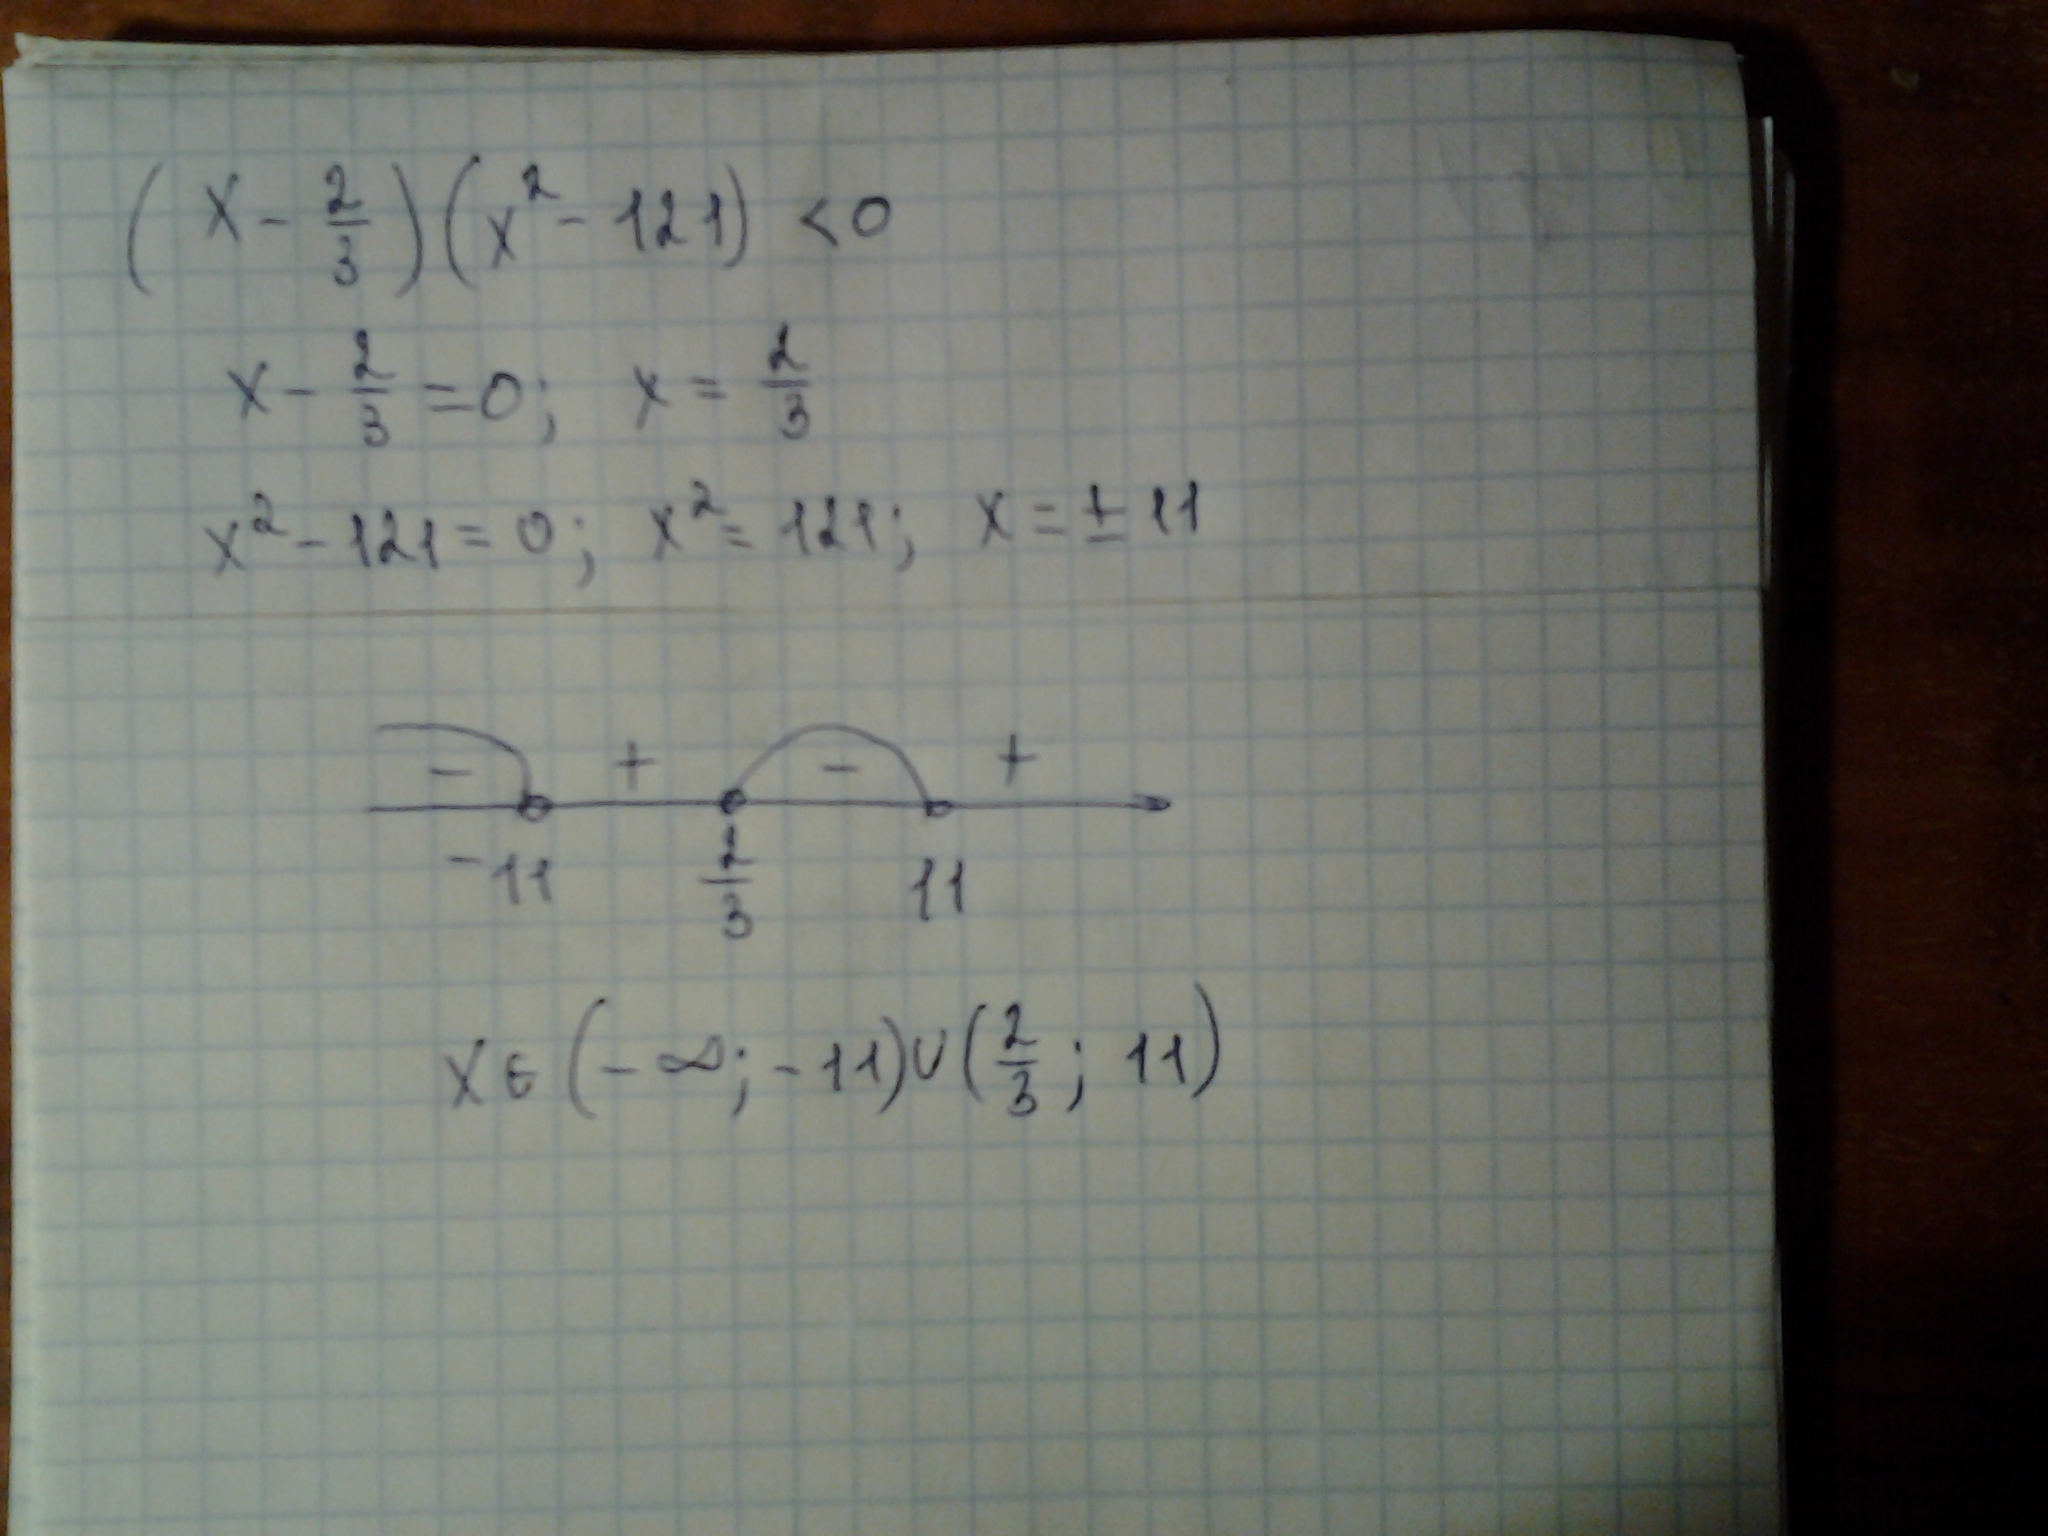 (x - 2/3)(x² - 121) < 0
x - 2/3 = 0; x = 2/3
x² - 121 = 0; x² = 121; x = ± 11
- + - +
-11 2/3 11
x ∈ (-∞; -11) ∪ (2/3; 11)